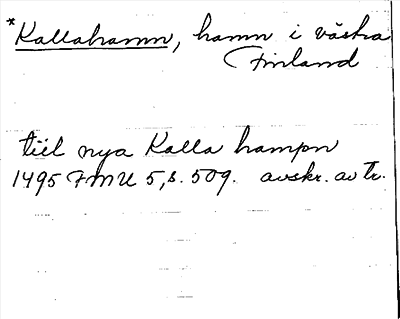 *Kallahamn, hamn i västra
Finland
tiil nya Kalla hampn
1495 FMU 5, s. 509. avskr. av tr.